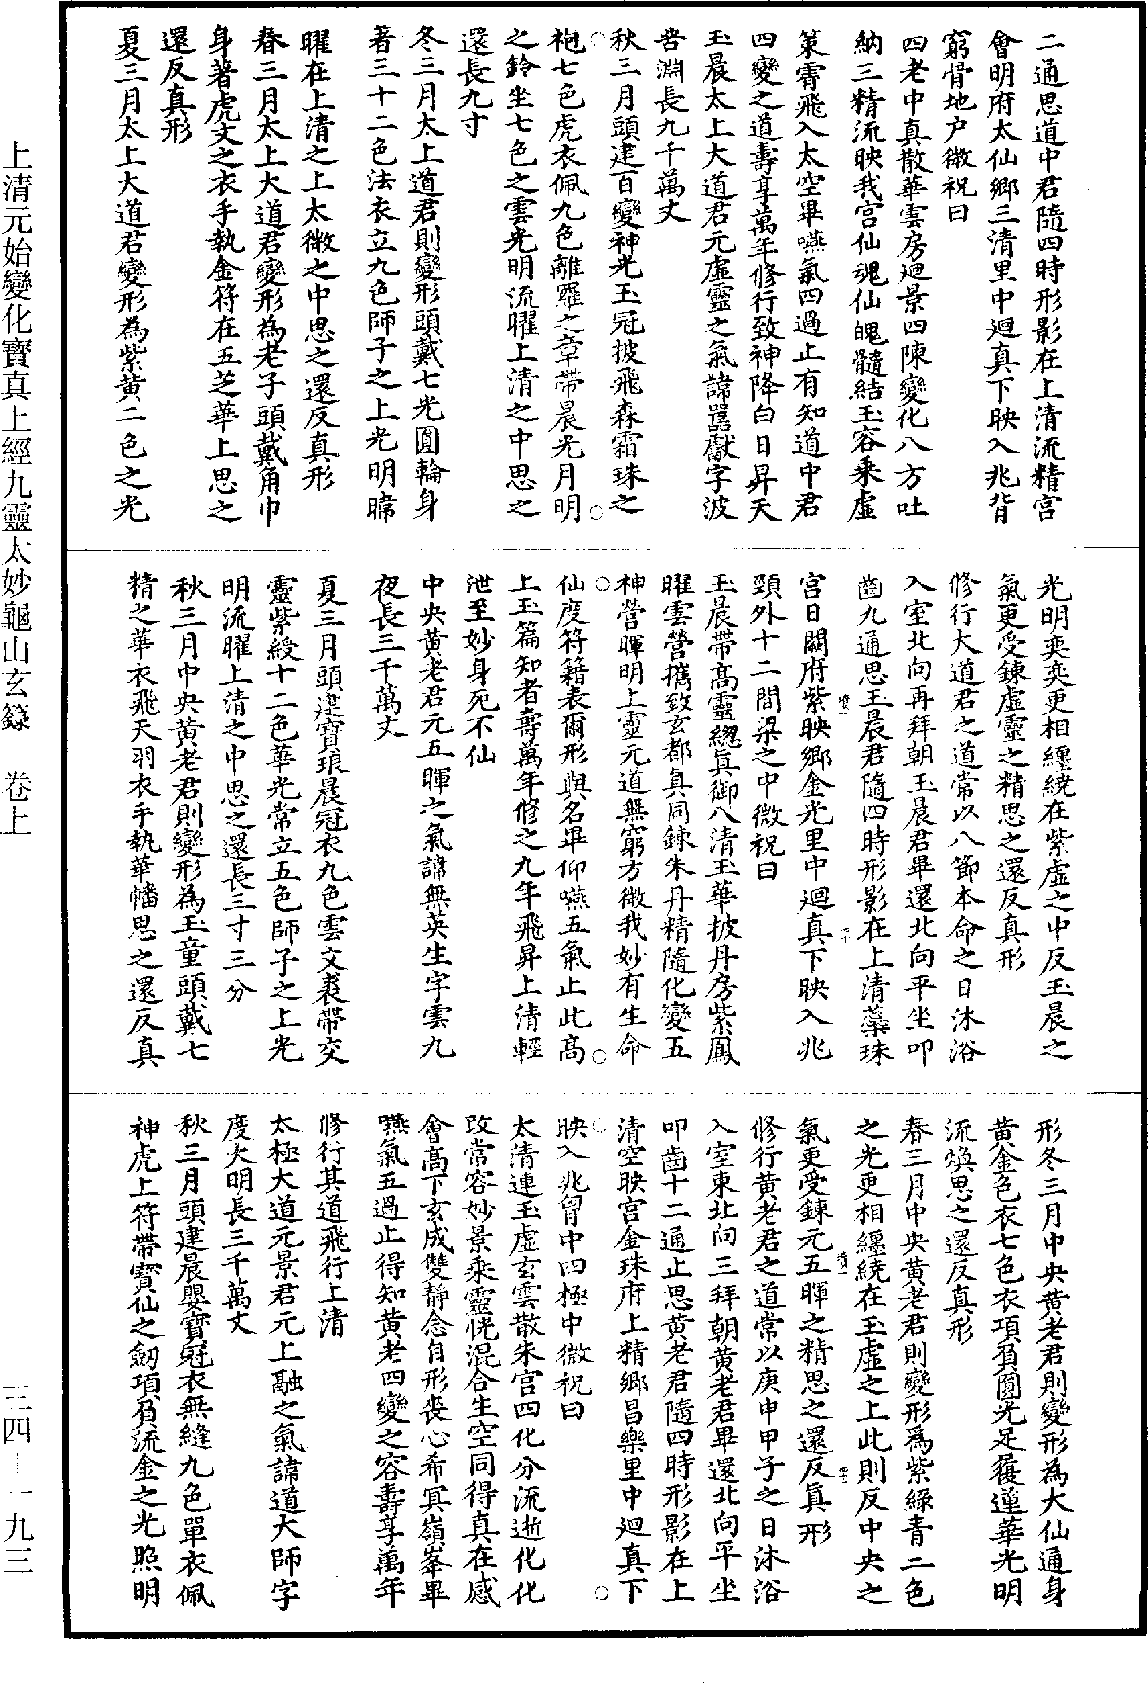 二通思道中君隨四時形影在上清流精宮
會明府太仙鄉三清里中廻真下映入兆背
窮骨地戶微祝曰
四老中真散華雲房廻景四陳變化八方吐
納三精流映我宮仙魂仙魄髓結玉容乘虛
策霄飛入太空畢嚥氣四過止有知道中君
四變之道壽享萬年修行致神降白日昇天
玉晨太上大道君元虛靈之氣諱嚣獻字波
咎淵長九千萬丈
秋三月頭建百變神光玉冠披飛森霜珠之
袍七色虎衣佩九色離羅之章帶晨光月明
之鈴坐七色之雲光明流曜上清之中思之
還長九寸
冬三月太上道君則變形頭戴七光圓輪身
著三十二色法衣立九色師子之上光明暐
曜在上清之上太微之中思之還反真形
春三月太上大道君變形為老子頭戴角巾
身著虎文之衣手執金符在五芝華上思之
還反真形
夏三月太上大道君變形為紫黄二色之光
光明奕奕更相纏繞在紫虛之中反玉晨之
氣更受鍊虛靈之精思之還反真形
修行大道君之道常以八節本命之日沐浴
入室北向再拜朝玉晨君畢還北向平坐叩
齒九通思玉晨君隨四時形影在上清蘂珠
宮日闕府紫映鄉金光里中廻真下映入兆
頸外十二間梁之中微祝曰
玉晨帶高靈緫真御八清玉華披丹房紫鳳
曜雲營攜致玄都真同鍊朱丹精隨化變五
神營暉明上靈元道無窮方微我妙有生命
仙度符籍表爾形與名畢仰嚥五氣止此高
上玉篇知者壽萬年修之九年飛昇上清輕
泄至妙身死不仙
中央黃老君元五暉之氣諱無英生字雲九
夜長三千萬丈
夏三月頭建寶琅晨冠衣九色雲文裘帶交
靈紫綬十二色華光常立五色師子之上光
明流曜上清之中思之還長三寸三分
秋三月中央黃老君則變形為玉童頭戴七
精之華衣飛天羽衣手執華幡思之還反真
形冬三月中央黃老君則變形為大仙通身
黃金色衣七色衣項負圓光足履蓮華光明
流煥思之還反真形
春三月中央黃老君則變形為紫綠青二色
之光更相纏繞在玉虛之上此則反中央之
氣更受鍊元五暉之精思之還反真形
修行黃老君之道常以庚申甲子之日沐浴
入室東北向三拜朝黃老君畢還北向平坐
叩齒十二通止思黃老君隨四時形影在上
清空映宮金珠府上精鄉昌樂里中廻真下
映入兆胷中四極中微祝曰
太清連玉虛玄雲散朱宮四化分流逝化化
改常容妙景乘靈恍混合生空同得真在感
會高下玄成雙靜念自形喪心希冥嶺峯畢
嚥氣五過止得知黃老四變之容壽享萬年
修行其道飛行上清
太極大道元景君元上融之氣諱道大師字
度大明長三千萬丈
秋三月頭建晨嬰寶冠衣無縫九色單衣佩
神虎上符帶寶仙之劒項負流金之光照明
上清元始變化寶真上經九靈太妙龜山玄籙　卷上
三四—一九三